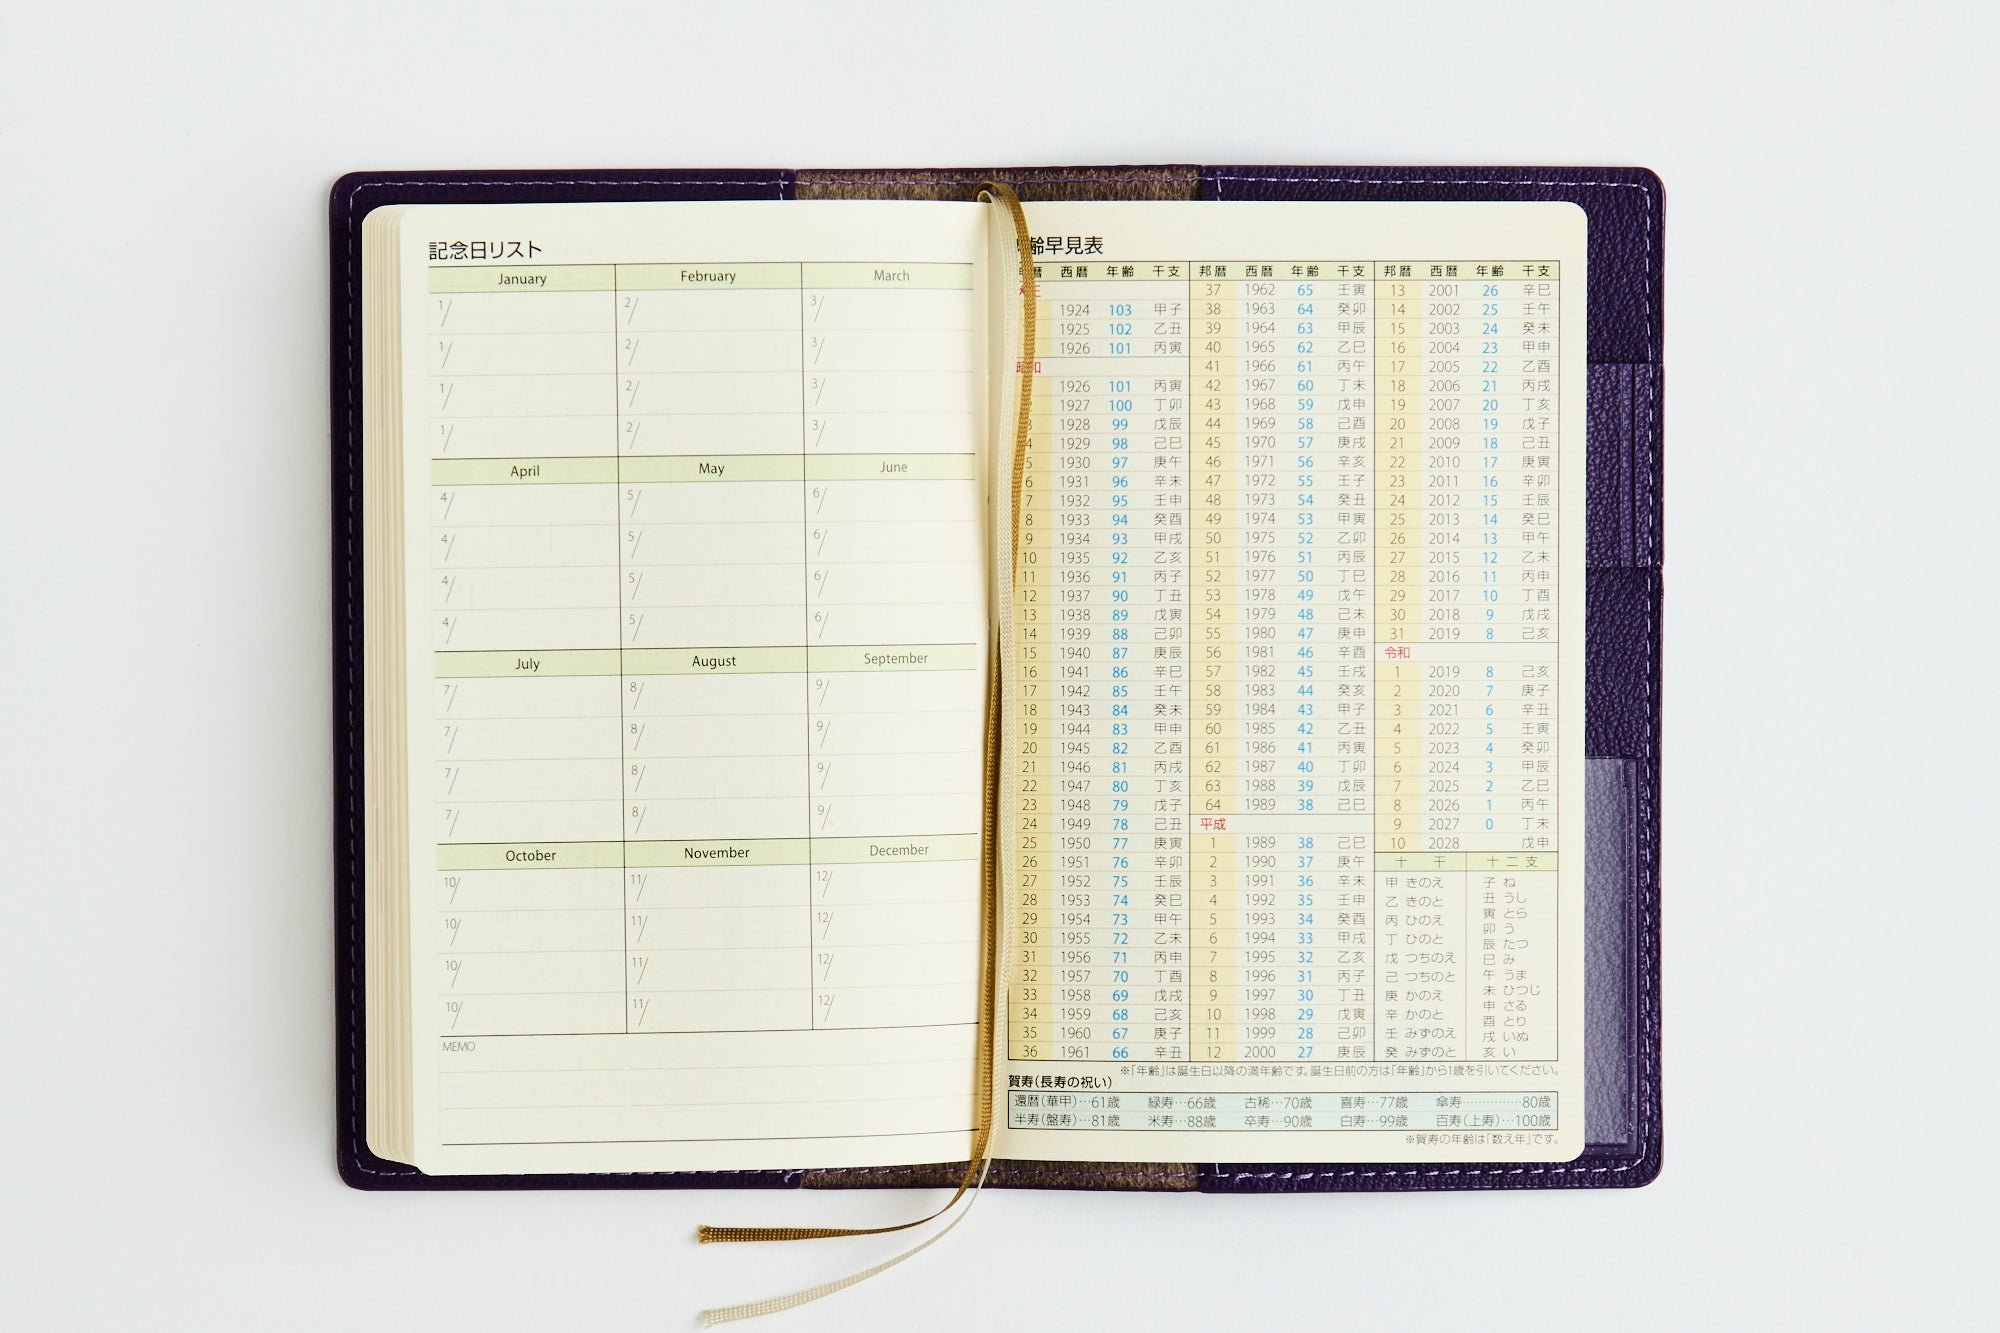 記念日リスト
January February March
1/ 2/ 3/
1/ 2/ 3/
1/ 2/ 3/
1/ 2/ 3/
April May June
4/ 5/ 6/
4/ 5/ 6/
4/ 5/ 6/
4/ 5/ 6/
July August September
7/ 8/ 9/
7/ 8/ 9/
7/ 8/ 9/
7/ 8/ 9/
October November December
10/ 11/ 12/
10/ 11/ 12/
10/ 11/ 12/
10/ 11/ 12/
MEMO
齢早見表
暦 西暦 年齢 干支
1924 103 甲子
1925 102 乙丑
1926 101 丙寅
和
1926 101 丙寅
1927 100 丁卯
3 1928 99 戊辰
4 1929 98 己巳
5 1930 97 庚午
6 1931 96 辛未
7 1932 95 壬申
8 1933 94 癸酉
9 1934 93 甲戌
10 1935 92 乙亥
11 1936 91 丙子
12 1937 90 丁丑
13 1938 89 戊寅
14 1939 88 己卯
15 1940 87 庚辰
16 1941 86 辛巳
17 1942 85 壬午
18 1943 84 癸未
19 1944 83 甲申
20 1945 82 乙酉
21 1946 81 丙戌
22 1947 80 丁亥
23 1948 79 戊子
24 1949 78 己丑
25 1950 77 庚寅
26 1951 76 辛卯
27 1952 75 壬辰
28 1953 74 癸巳
29 1954 73 甲午
30 1955 72 乙未
31 1956 71 丙申
32 1957 70 丁酉
33 1958 69 戊戌
34 1959 68 己亥
35 1960 67 庚子
36 1961 66 辛丑
邦暦 西暦 年齢 干支
37 1962 65 壬寅
38 1963 64 癸卯
39 1964 63 甲辰
40 1965 62 乙巳
41 1966 61 丙午
42 1967 60 丁未
43 1968 59 戊申
44 1969 58 己酉
45 1970 57 庚戌
46 1971 56 辛亥
47 1972 55 壬子
48 1973 54 癸丑
49 1974 53 甲寅
50 1975 52 乙卯
51 1976 51 丙辰
52 1977 50 丁巳
53 1978 49 戊午
54 1979 48 己未
55 1980 47 庚申
56 1981 46 辛酉
57 1982 45 壬戌
58 1983 44 癸亥
59 1984 43 甲子
60 1985 42 乙丑
61 1986 41 丙寅
62 1987 40 丁卯
63 1988 39 戊辰
64 1989 38 己巳
平成
1 1989 38 己巳
2 1990 37 庚午
3 1991 36 辛未
4 1992 35 壬申
5 1993 34 癸酉
6 1994 33 甲戌
7 1995 32 乙亥
8 1996 31 丙子
9 1997 30 丁丑
10 1998 29 戊寅
11 1999 28 己卯
12 2000 27 庚辰
邦暦 西暦 年齢 干支
13 2001 26 辛巳
14 2002 25 壬午
15 2003 24 癸未
16 2004 23 甲申
17 2005 22 乙酉
18 2006 21 丙戌
19 2007 20 丁亥
20 2008 19 戊子
21 2009 18 己丑
22 2010 17 庚寅
23 2011 16 辛卯
24 2012 15 壬辰
25 2013 14 癸巳
26 2014 13 甲午
27 2015 12 乙未
28 2016 11 丙申
29 2017 10 丁酉
30 2018 9 戊戌
31 2019 8 己亥
令和
1 2019 8 己亥
2 2020 7 庚子
3 2021 6 辛丑
4 2022 5 壬寅
5 2023 4 癸卯
6 2024 3 甲辰
7 2025 2 乙巳
8 2026 1 丙午
9 2027 0 丁未
10 2028 戊申
十干
甲 きのえ
乙 きのと
丙 ひのえ
丁 ひのと
戊 つちのえ
己 つちのと
庚 かのえ
辛 かのと
壬 みずのえ
癸 みずのと
十二支
子 ね
丑 うし
寅 とら
卯 う
辰 たつ
巳 み
午 うま
未 ひつじ
申 さる
酉 とり
戌 いぬ
亥 い
※「年齢」は誕生日以降の満年齢です。誕生日前の方は「年齢」から1歳を引いてください。
賀寿(長寿の祝い)
還暦(華甲)…61歳 緑寿…66歳 古稀…70歳 喜寿…77歳 傘寿…………80歳
半寿(盤寿)…81歳 米寿…88歳 卒寿…90歳 白寿…99歳 百寿(上寿)…100歳
※賀寿の年齢は「数え年」です。